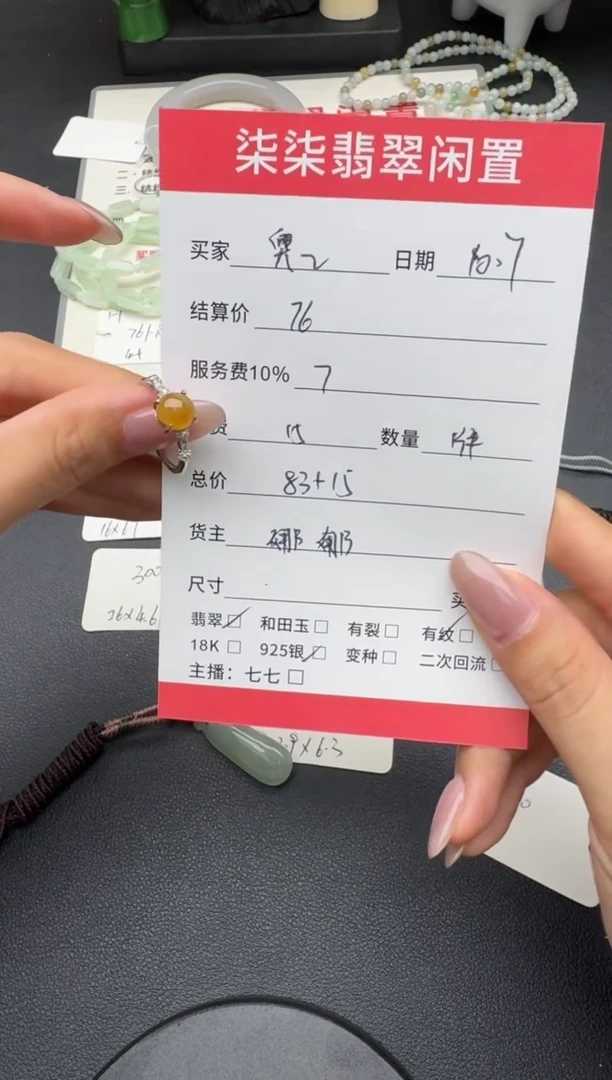 柒柒翡翠闲置
买家 奥2 日期 10.7
结算价 76
服务费10% 7
费 15 数量 1件
总价 83+15
货主 娜娜
尺寸
翡翠 和田玉 有裂 有纹
18K 925银 变种 二次回流
主播：七七
300
16x6.1
36x4.6